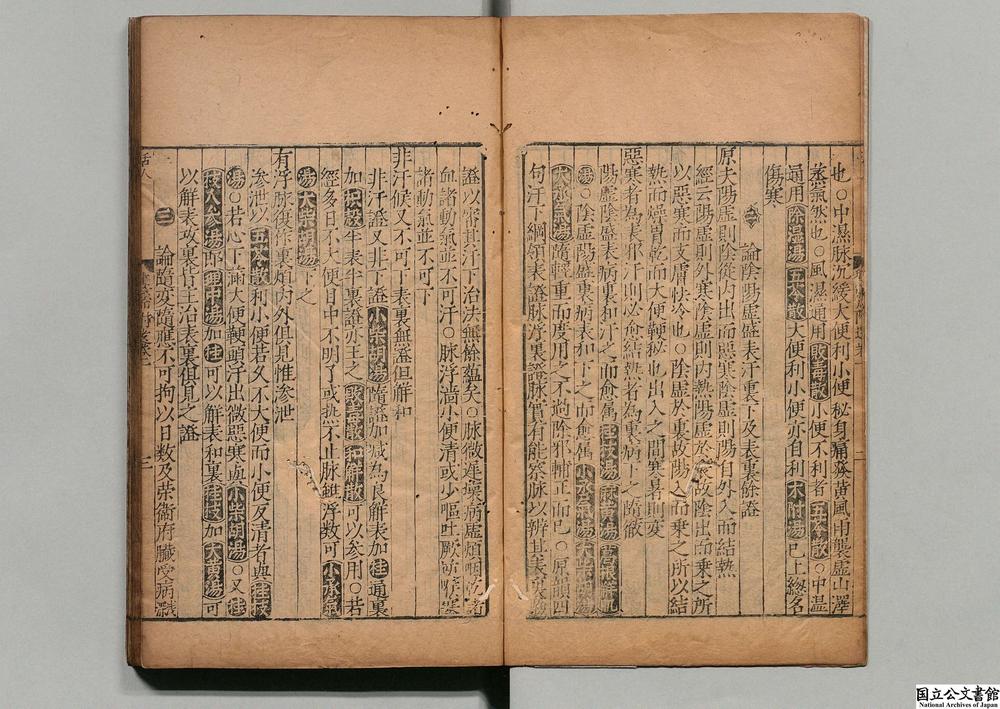 也○中濕脉沉緩大便利小便秘身痛發黃風雨襲虛山澤
蒸氣然也○風濕通用敗毒散小便不利者五苓散○中温
通用除濕湯五苓散大便利小便亦自利木附湯已上緫名
傷寒
㊁ 論陰陽虛盛表汗裏下及表裏餘證
原夫陽虛則陰從內出而惡寒陰虛則陽自外入而結熱
經云陽虛則外寒陰虛則內熱陽虛於表故陰出而乘之所
以惡寒而支膚快冷也○陰虛於裏故陽入而乘之所以結
熱而燥胃乾而大便鞕秘也出入之間寒暑則变
惡寒者為表邪汗則必愈結熱者為裏病下之隨儆
陽虛陰盛表病裏和汗之而愈属桂枝湯麻黃湯葛根解肌
湯○陰虛陽盛裏病表和下之而愈属小承氣湯大柴胡湯
大承氣湯隨輕重而度用之不過除邪輔正而已○原頭四
句汗下綱領表證脉浮裏證脉實有能察脉以辨其表
證以審其汗下治法無餘蘊矣○脉微遲壞病虛煩咽乾諸
血諸動氣並不可汗○脉浮嗇小便清或少嘔吐厥
諸動氣並不可下
非汗候又不可下表裏無證但解和
非汗證又非下證小柴胡湯隨證加減為良解表加桂通裏
加枳殼半表半裏證亦主之敗毒散和解散可以參用○若
經多日不大便目中不明了或热不止脉䱉浮数可小承氣
湯大柴胡湯下之
有浮脉復作裏煩內外俱見惟渗泄
渗泄以五苓散利小便若又不大便而小便反清者與桂枝
湯○若心下滿大便鞕頭汗出微惡寒與小柴胡湯○又桂
枝人參湯即理中湯加桂可以解表和裏桂枝加大黃湯可
以解表攻裏皆主治表裏俱見之證
㊂ 論隨变隨應不可拘以日数及荣衛府臟受病淺
活人
三
国立公文書館
National Archives of Japan